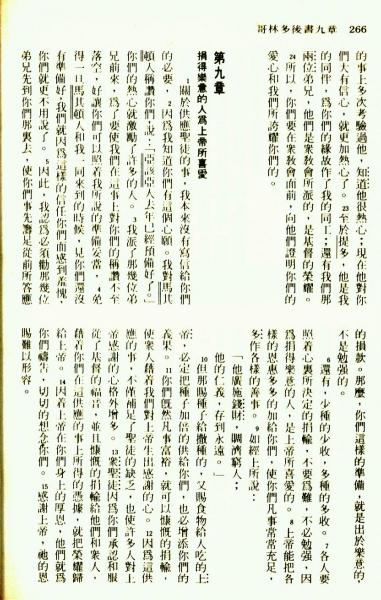 266 哥林多後書九章
的事上多次考驗過他，知道他很熱心；現在他對你
們大有信心，就更加熱心了。23至於提多，他是我
的同伴，爲你們的緣故作了我的同工；還有我們那
兩位弟兄，他們是衆敎會所派的，是基督的榮耀。
24所以，你們要在衆敎會面前，向他們證明你們的
愛心和我們所誇耀你們的。
第九章
捐得樂意的人爲上帝所喜愛
1關於供應聖徒的事，我本來沒有寫信給你們
的必要，2因爲我知道你們有這個心願。我對馬其
頓人稱讚你們，說：「亞該亞人去年已經預備好了。」
你們的熱心就激勵了許多的人。3我派了那幾位弟
兄前來，爲了要使我們在這事上對你們的稱讚不至
落空，好讓你們可以照着我所說的準備妥當，4免
得一旦馬其頓人和我一同來到的時候，見你們還沒
有準備好，我們就因爲這樣的信任你們而感到羞愧，
你們就更不用說了。5因此，我認爲必須勸那幾位
弟兄先到你們那裏去，使你們事先籌足從前所答應
的損款。那麼，你們這樣的準備，就是出於樂意的，
不是勉強的。
6還有，少種的少收，多種的多收。7各人要
照着心裏所決定的捐輸，不要爲難，不必勉強，因
爲捐得樂意的人，是上帝所喜愛的。8上帝能把各
樣的恩惠多多的加給你們，使你們凡事常常充足，
多作各樣的善事。9如經上所說：
「他廣施錢財，賙濟窮人；
他的仁義，存到永遠。」
10但那賜種子給撒種的，又賜食物給人吃的上
帝，必定把種子加倍的供給你們，也必增添你們的
義果。11你們旣然凡事富裕，就可以慷慨的捐輸，
使衆人藉着我們對上帝生出感謝的心。12因爲這供
應的事，不僅補足了聖徒的缺乏，也使許多人對上
帝感謝的心格外增多。13衆聖徒因爲你們承認和服
從了基督的福音，並且慷慨的捐輸給他們和衆人，
藉着你們在這供應的事上所得的憑據，就把榮耀歸
給上帝。14因着上帝在你們身上的厚恩，他們就爲
你們禱告，切切的想念你們。15感謝上帝，祂的恩
賜難以形容。